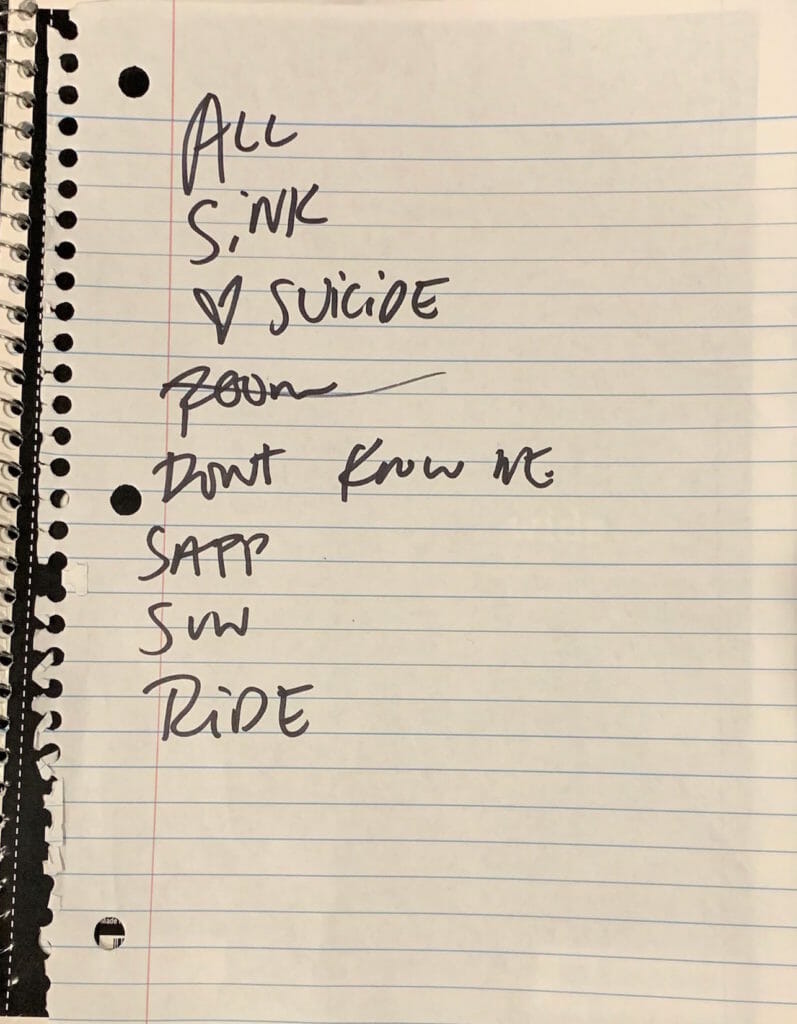 ALL
SiNK
♡ SUiCiDE
DONT KNOW ME.
SAPP
SUN
RiDE